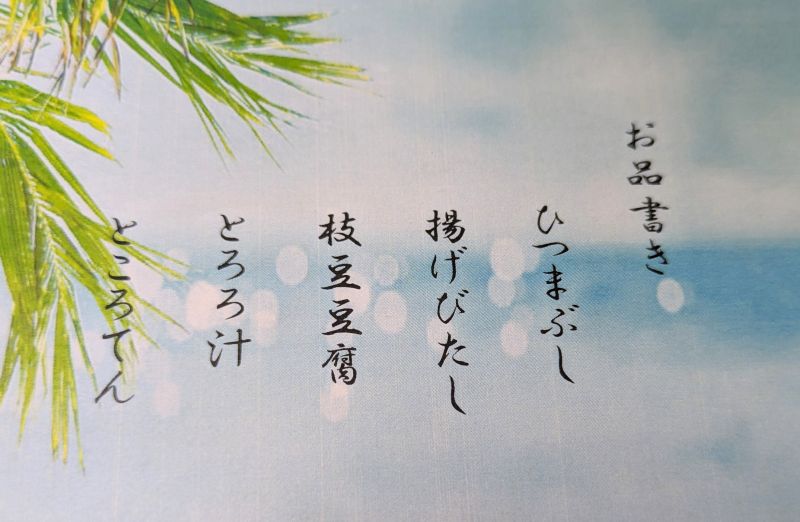 お品書き
ひつまぶし
揚げびたし
枝豆豆腐
とろろ汁
ところてん